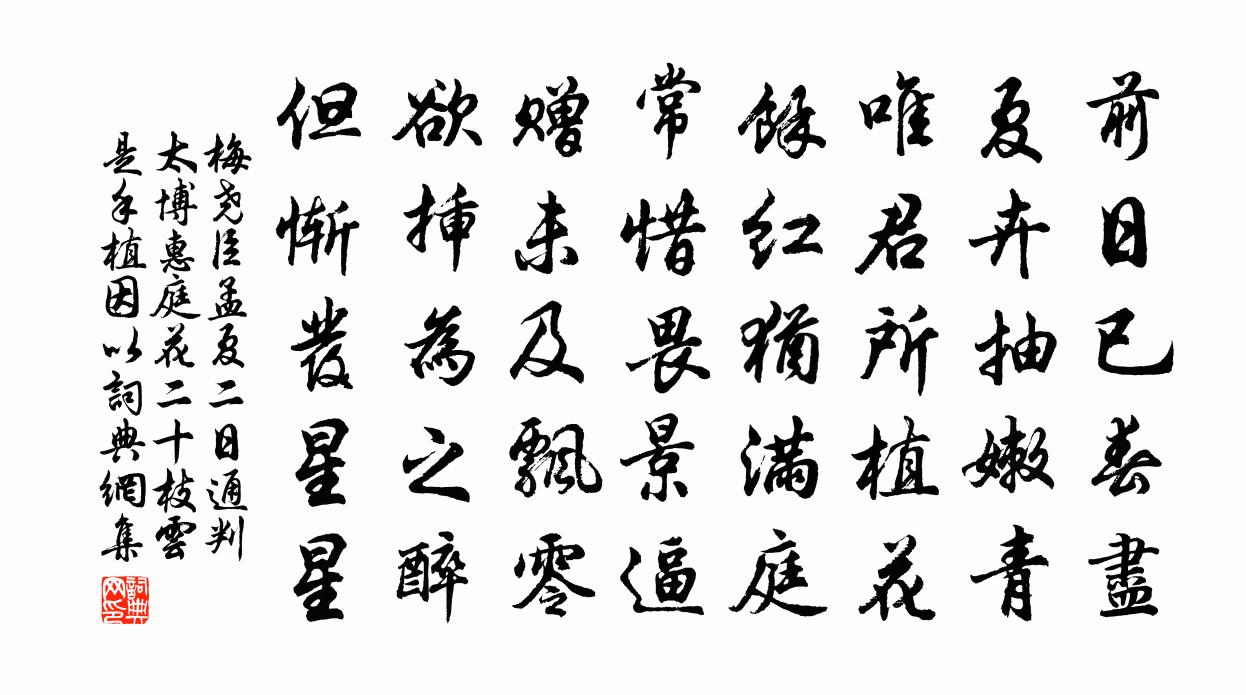 前日已春盡
夏卉抽嫩青
唯君所植花
餘紅猶滿庭
常惜畏景逼
贈未及飄零
欲挿為之醉
但慚發星星
梅堯臣孟夏二日通判
太博惠庭花二十枝雲
是手植因以詞典網集
詞典
网印